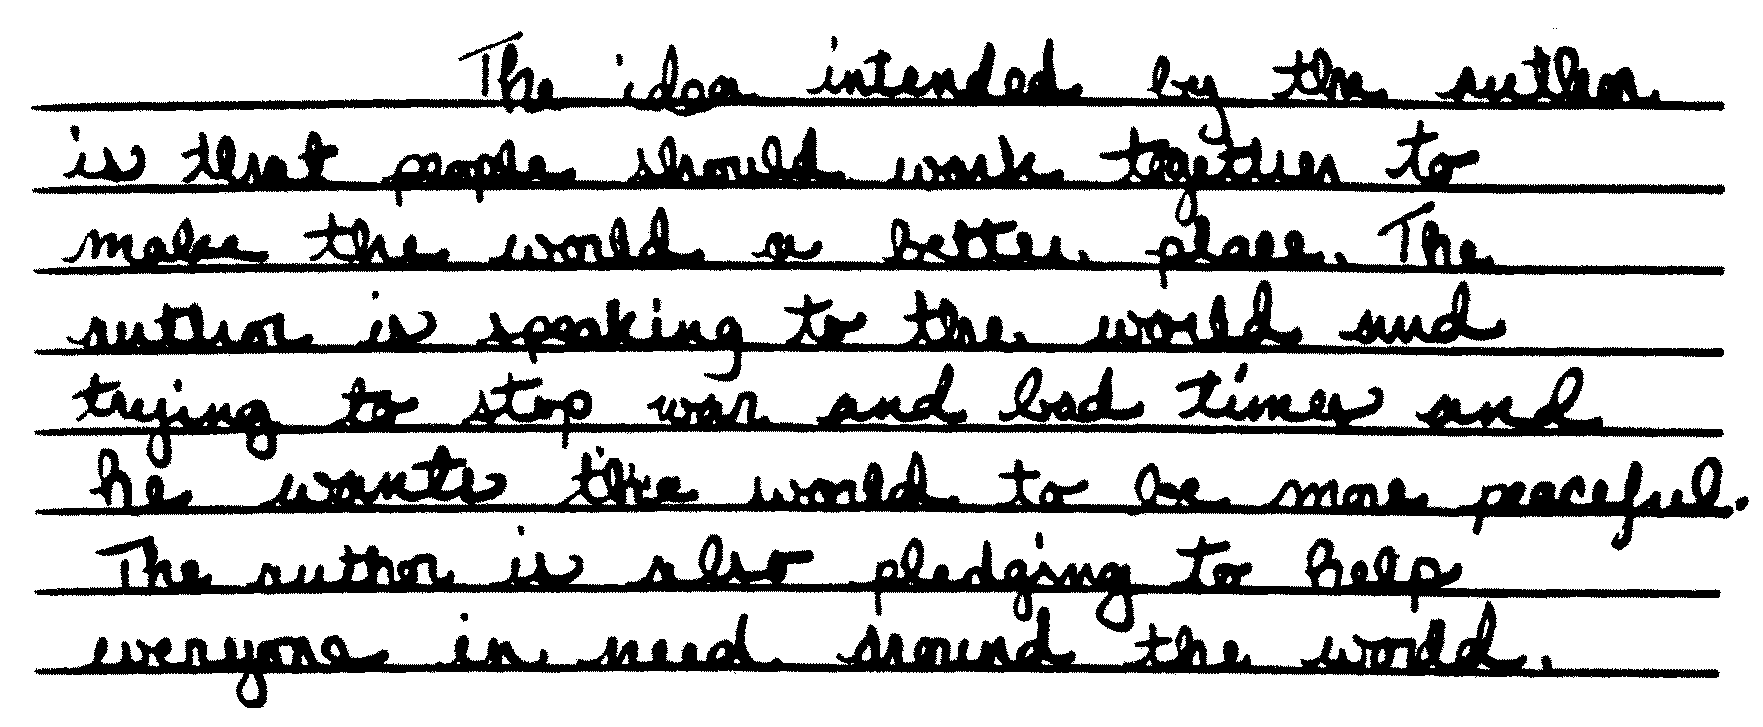 The idea intended by the author
is that people should work together to
make the world a better place. The
author is speaking to the world and
trying to stop war and bad times and
he wants the world to be more peaceful.
The author is also pledging to help
everyone in need around the world.